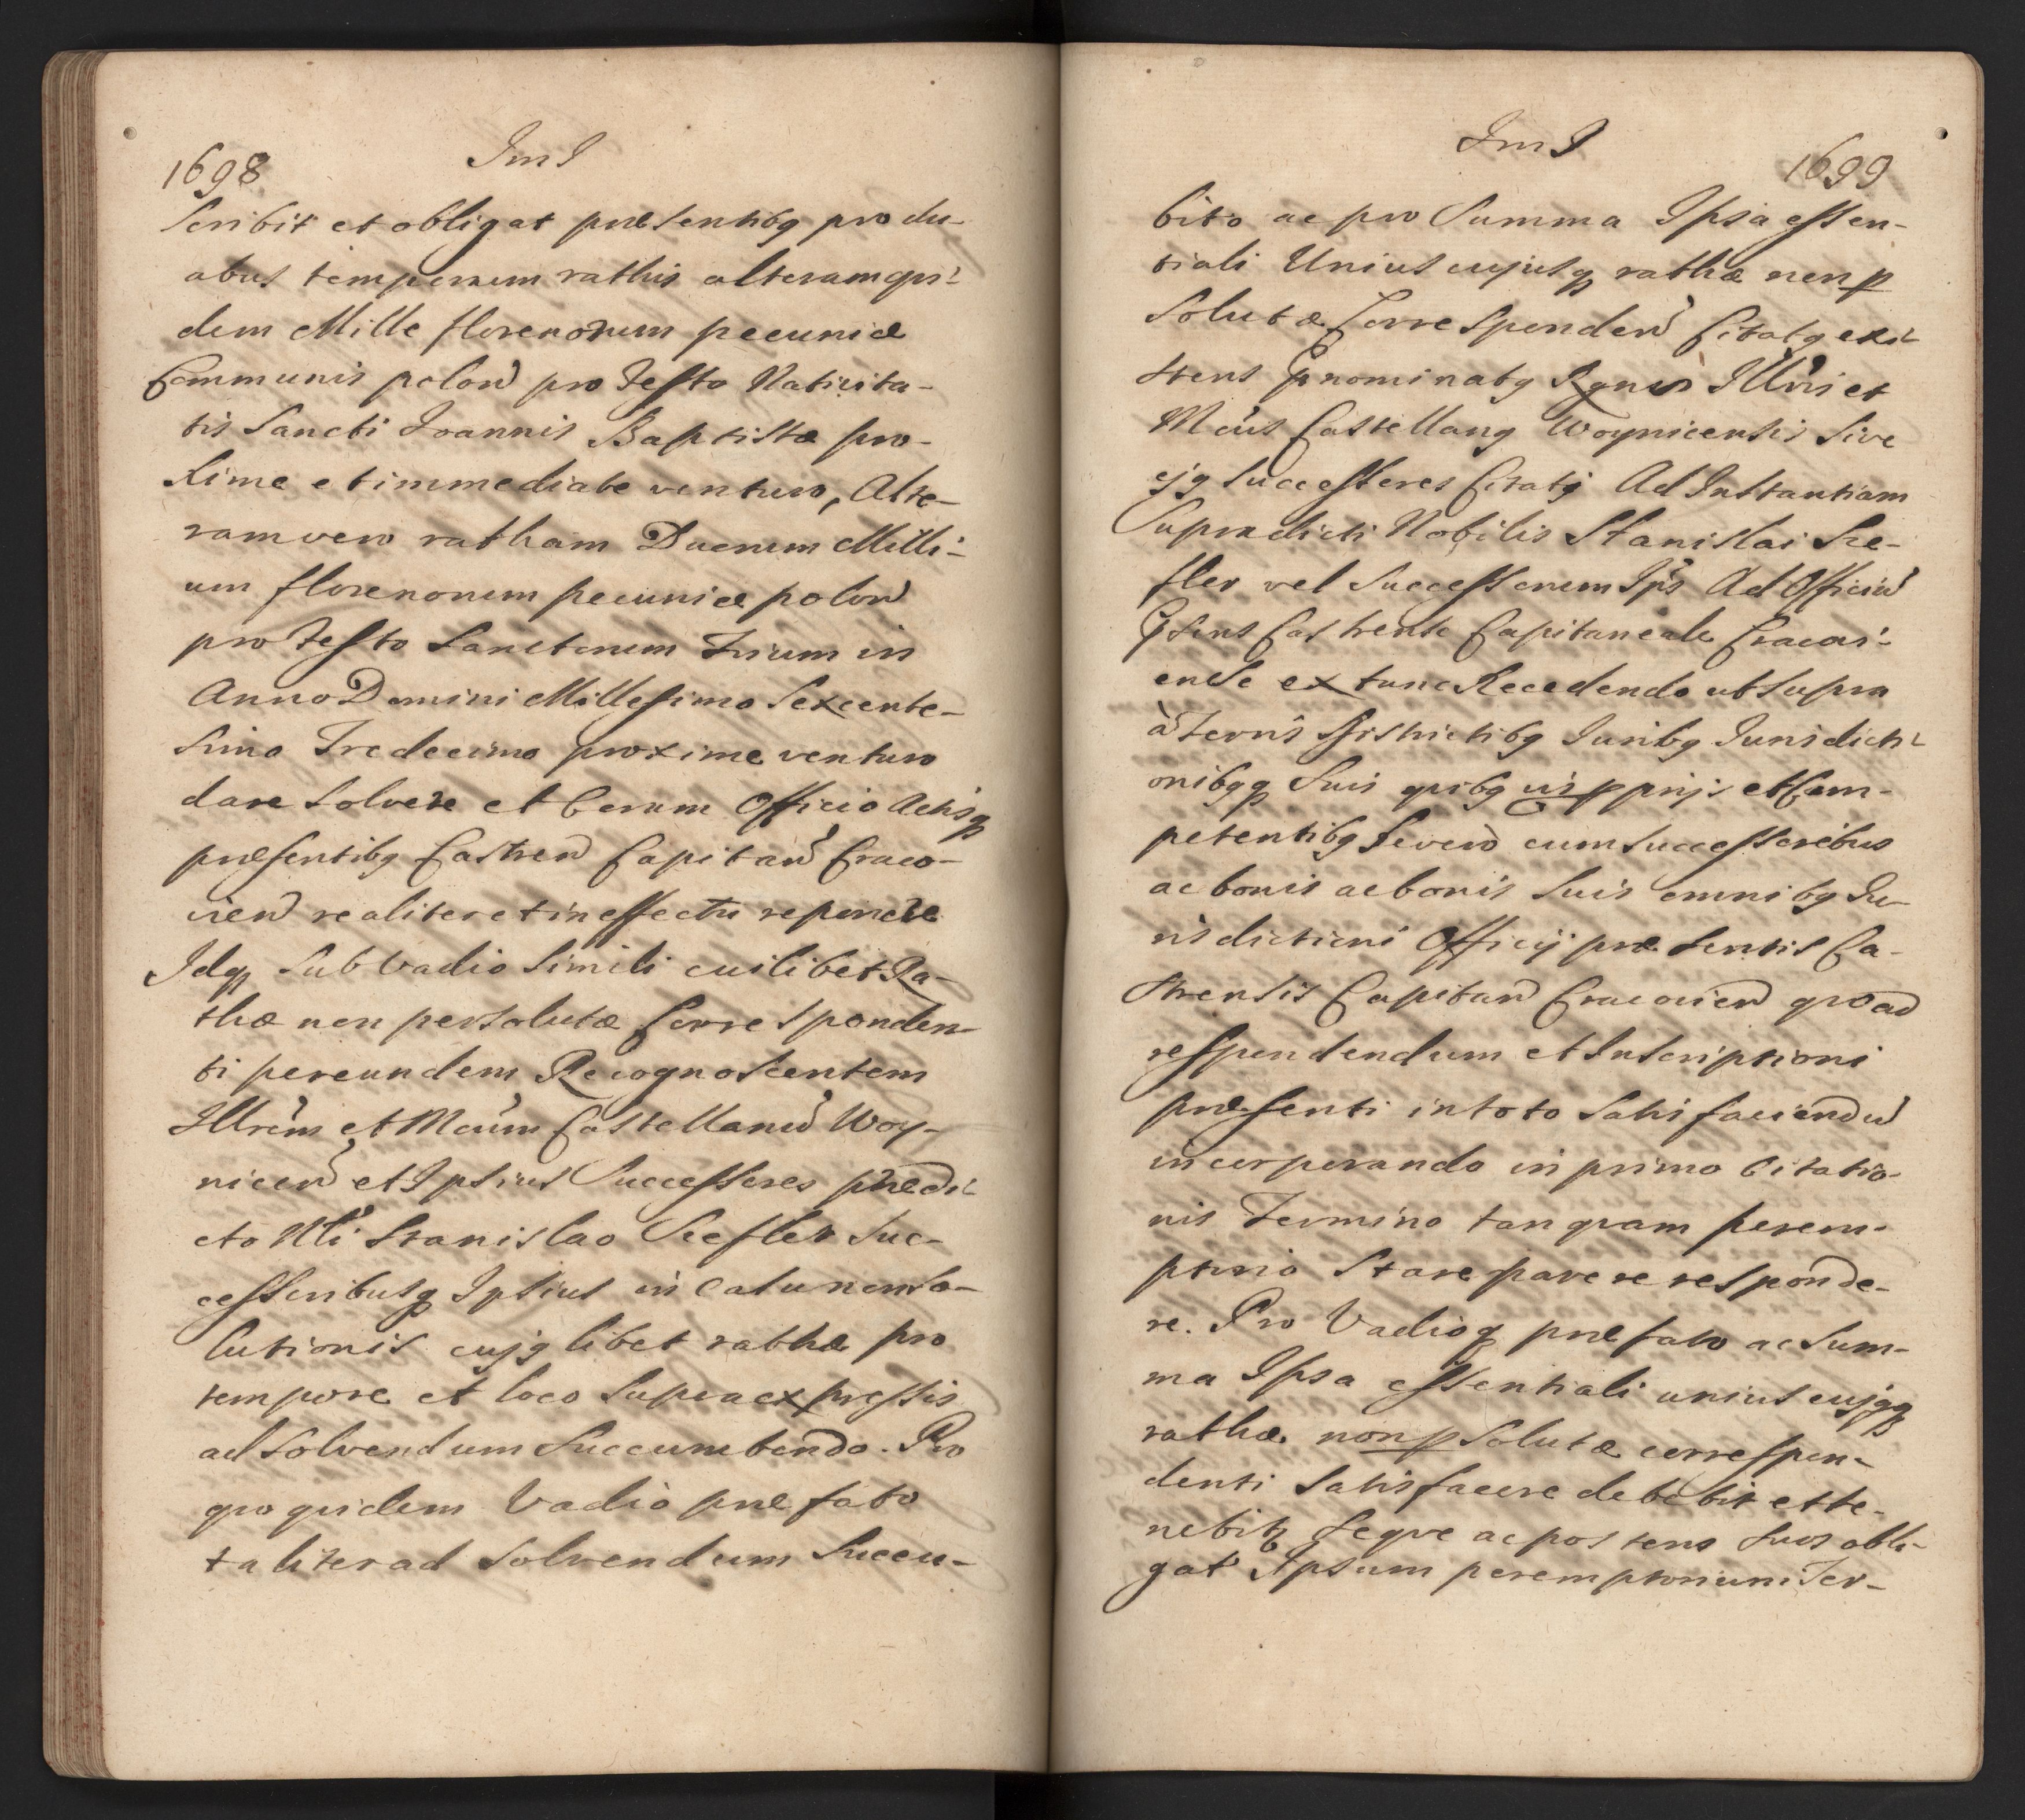 1698
JmJ
scribit et obligat præsentibq pro du-
abus temporum rathis alteram qui-
dem Mille florenorum pecuniæ
Communis polon pro Festo Nativita-
tis Sancti Joannis Baptistæ pro-
xime et immediate venturo, Alte-
ram vero ratham Duorum Milli-
um florenorum pecuniæ polon
pro Festo Sanctorum Trium in
Anno Domini Millesimo Sexcente-
simo Tredecimo proxime venturo
dare solvere et coram Officio Actisq
præsentibq Castren Capitan Craco-
vien realiter et in effectu reponere
Idq sub vadio simili cuilibet Ra-
thæ non persolutæ corresponden-
ti per eundem Recognoscentem
Illrem et Mcum Castellanu Woy-
nicen et Ipsius Successores prædi-
cto Nli Stanislao Szefler Suc-
cessoribusq Ipsius in casu non so-
lutionis cujq libet rathæ pro
tempore et loco supra expressis
ad solvendum succumbendo. Pro
quo quidem Vadio præfato
taliter ad solvendum succu-
JmJ
1699
bito ac pro Summa Ipsa essen-
tiali Unius cujusq rathæ non p
solutæ Corresponden Citatq exi-
stens prnominatq Rgnos Illris et
Mcus Castellanq Woynicensis sive
ejq Successores Citati Ad Instantiam
Supradicti Nobilis Stanislai Sze-
fler vel Successorum Ips Ad Officiu
Psens Castrense Capitaneale Cracovi-
ense ex tunc Recedendo ut supra
à Terris Districtibq Juribq Jurisdicti-
onibqq Suis quibq vis pprijs et Com-
petentibq se vero cum successoribus
ac bonis ac bonis suis omnibq Ju-
risdictioni Officij præsentis Ca-
strensis Capitan Cracovien quoad
respondendum et Inscriptioni
præsenti in toto satisfaciendu
incorporando in primo Citatio-
nis Termino tanquam perem-
ptorio Stare parere responde-
re. Pro Vadioq præfato ac Sum-
ma Ipsa essentiali unius cujqq
rathæ non p solutæ correspon-
denti satisfacere debebit et te-
nebitr seque ac posteros suos obli-
gat Ipsum peremptorium Ter-